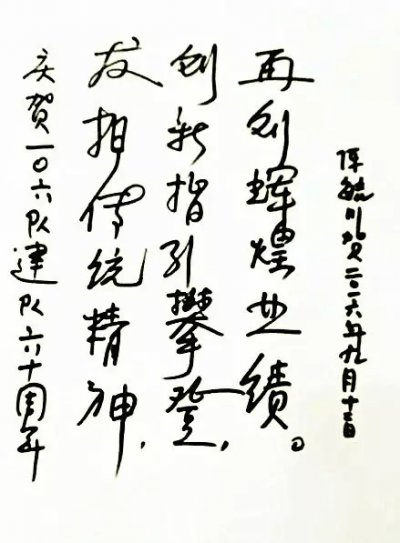 庆贺一〇六队建队六十周年
发扬传统精神，
创新指引攀登，
再创辉煌业绩。
陈毓川贺二〇一六年九月十二日